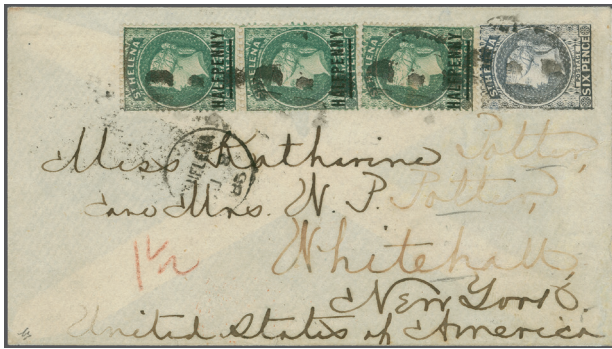 ST HELENA HALFPENNY
ST HELENA HALFPENNY
ST HELENA HALFPENNY
ST HELENA SIX PENCE
HELENA
Miss Katharine Potter,
Care Mrs. N. P. Potter,
Whitehall,
New York.
United States of America
1½